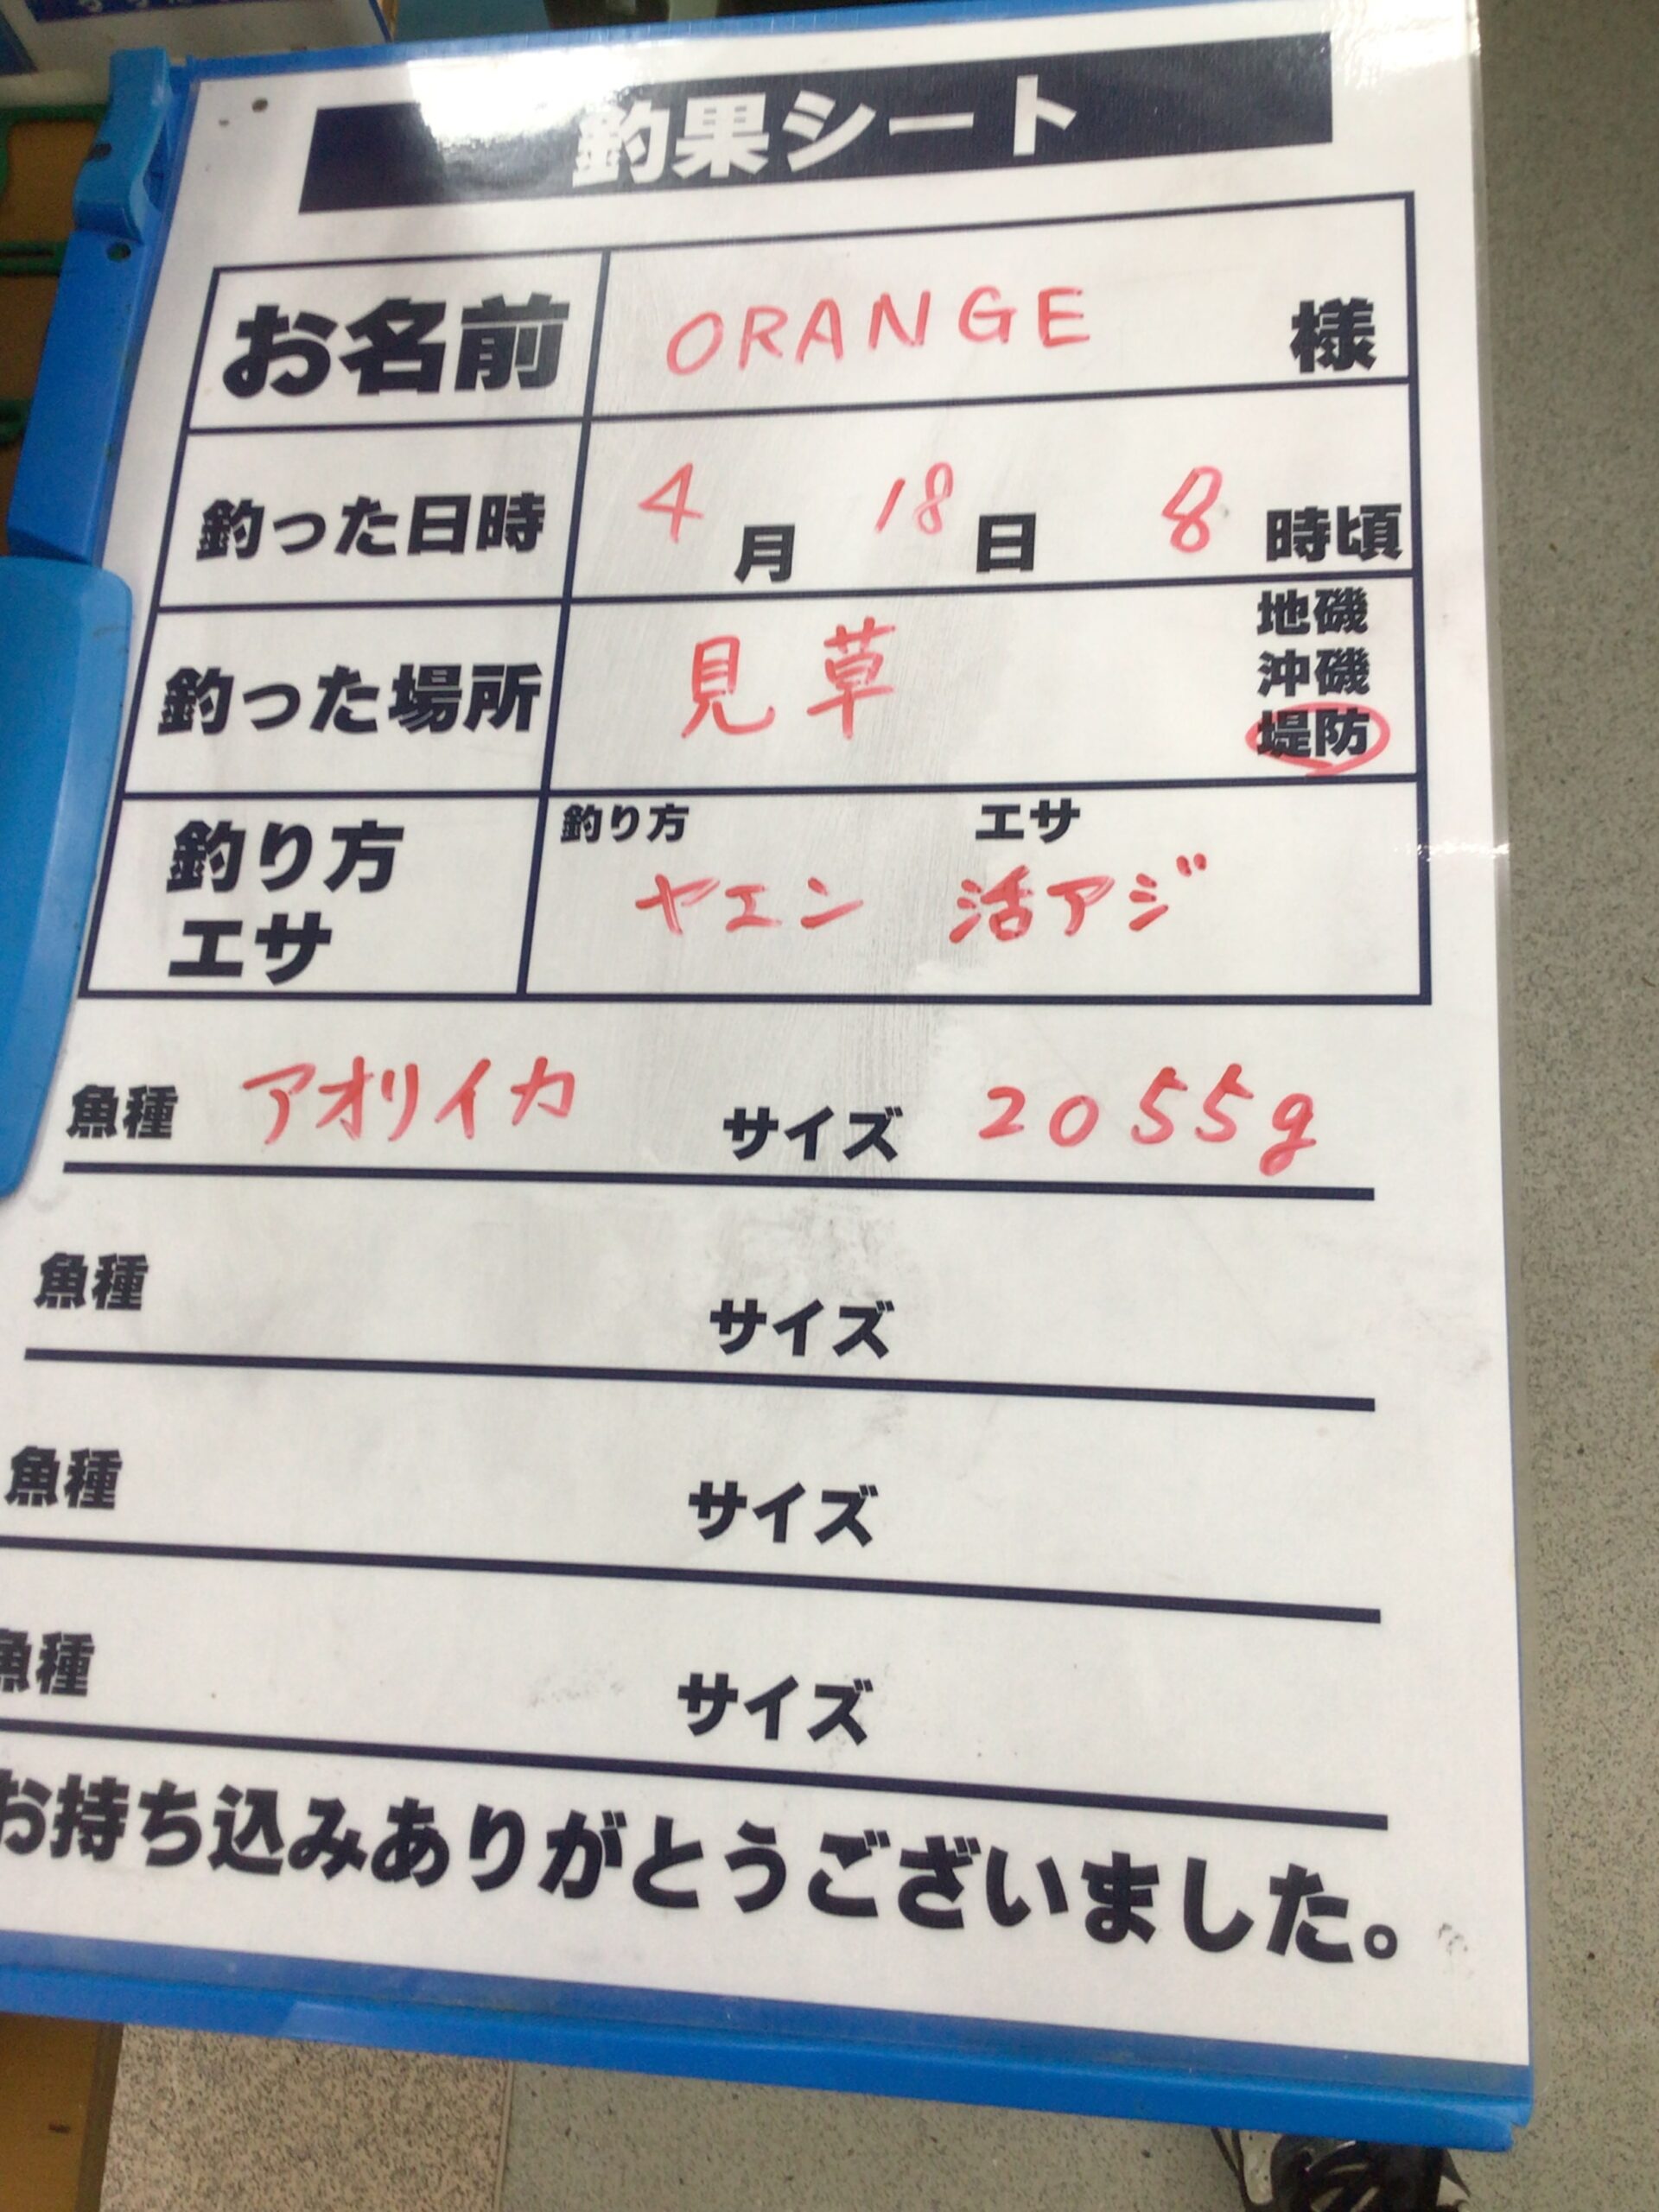 釣果シート
お名前 ORANGE 様
釣った日時 4月 18日 8時頃
釣った場所 見草 地磯
沖磯
堤防
釣り方 エサ
釣り方 ヤエン 活アジ
エサ
魚種 アオリイカ サイズ 2055g
魚種 サイズ
魚種 サイズ
魚種 サイズ
お持ち込みありがとうございました。